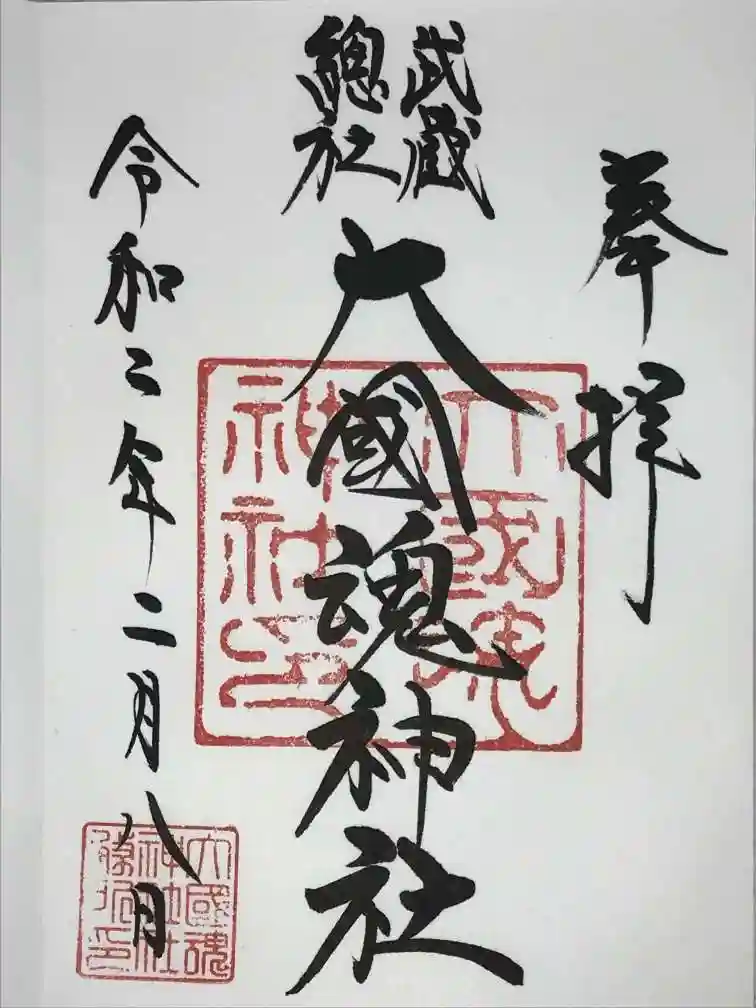 奉拝
武蔵
總社
大國魂神社
令和二年二月八日
大國魂
神社印
大國魂
神社社
務所印